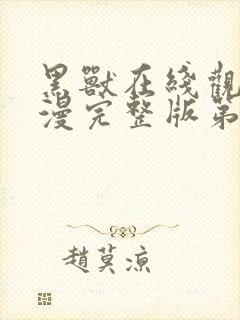 黑獸在綫觀
漫完整版第
趙莫涼